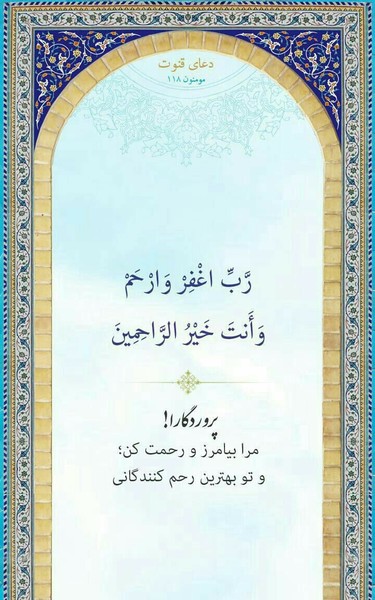 دعای قنوت
مومنون ۱۱۸
رَّبِّ اغْفِرْ وَارْحَمْ
وَأَنتَ خَيْرُ الرَّاحِمِينَ
پروردگارا!
مرا بیامرز و رحمت کن؛
و تو بهترین رحم کنندگانی